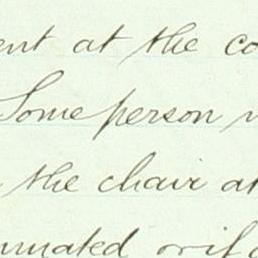 ent at the co
Some person
the chair at
minated or if